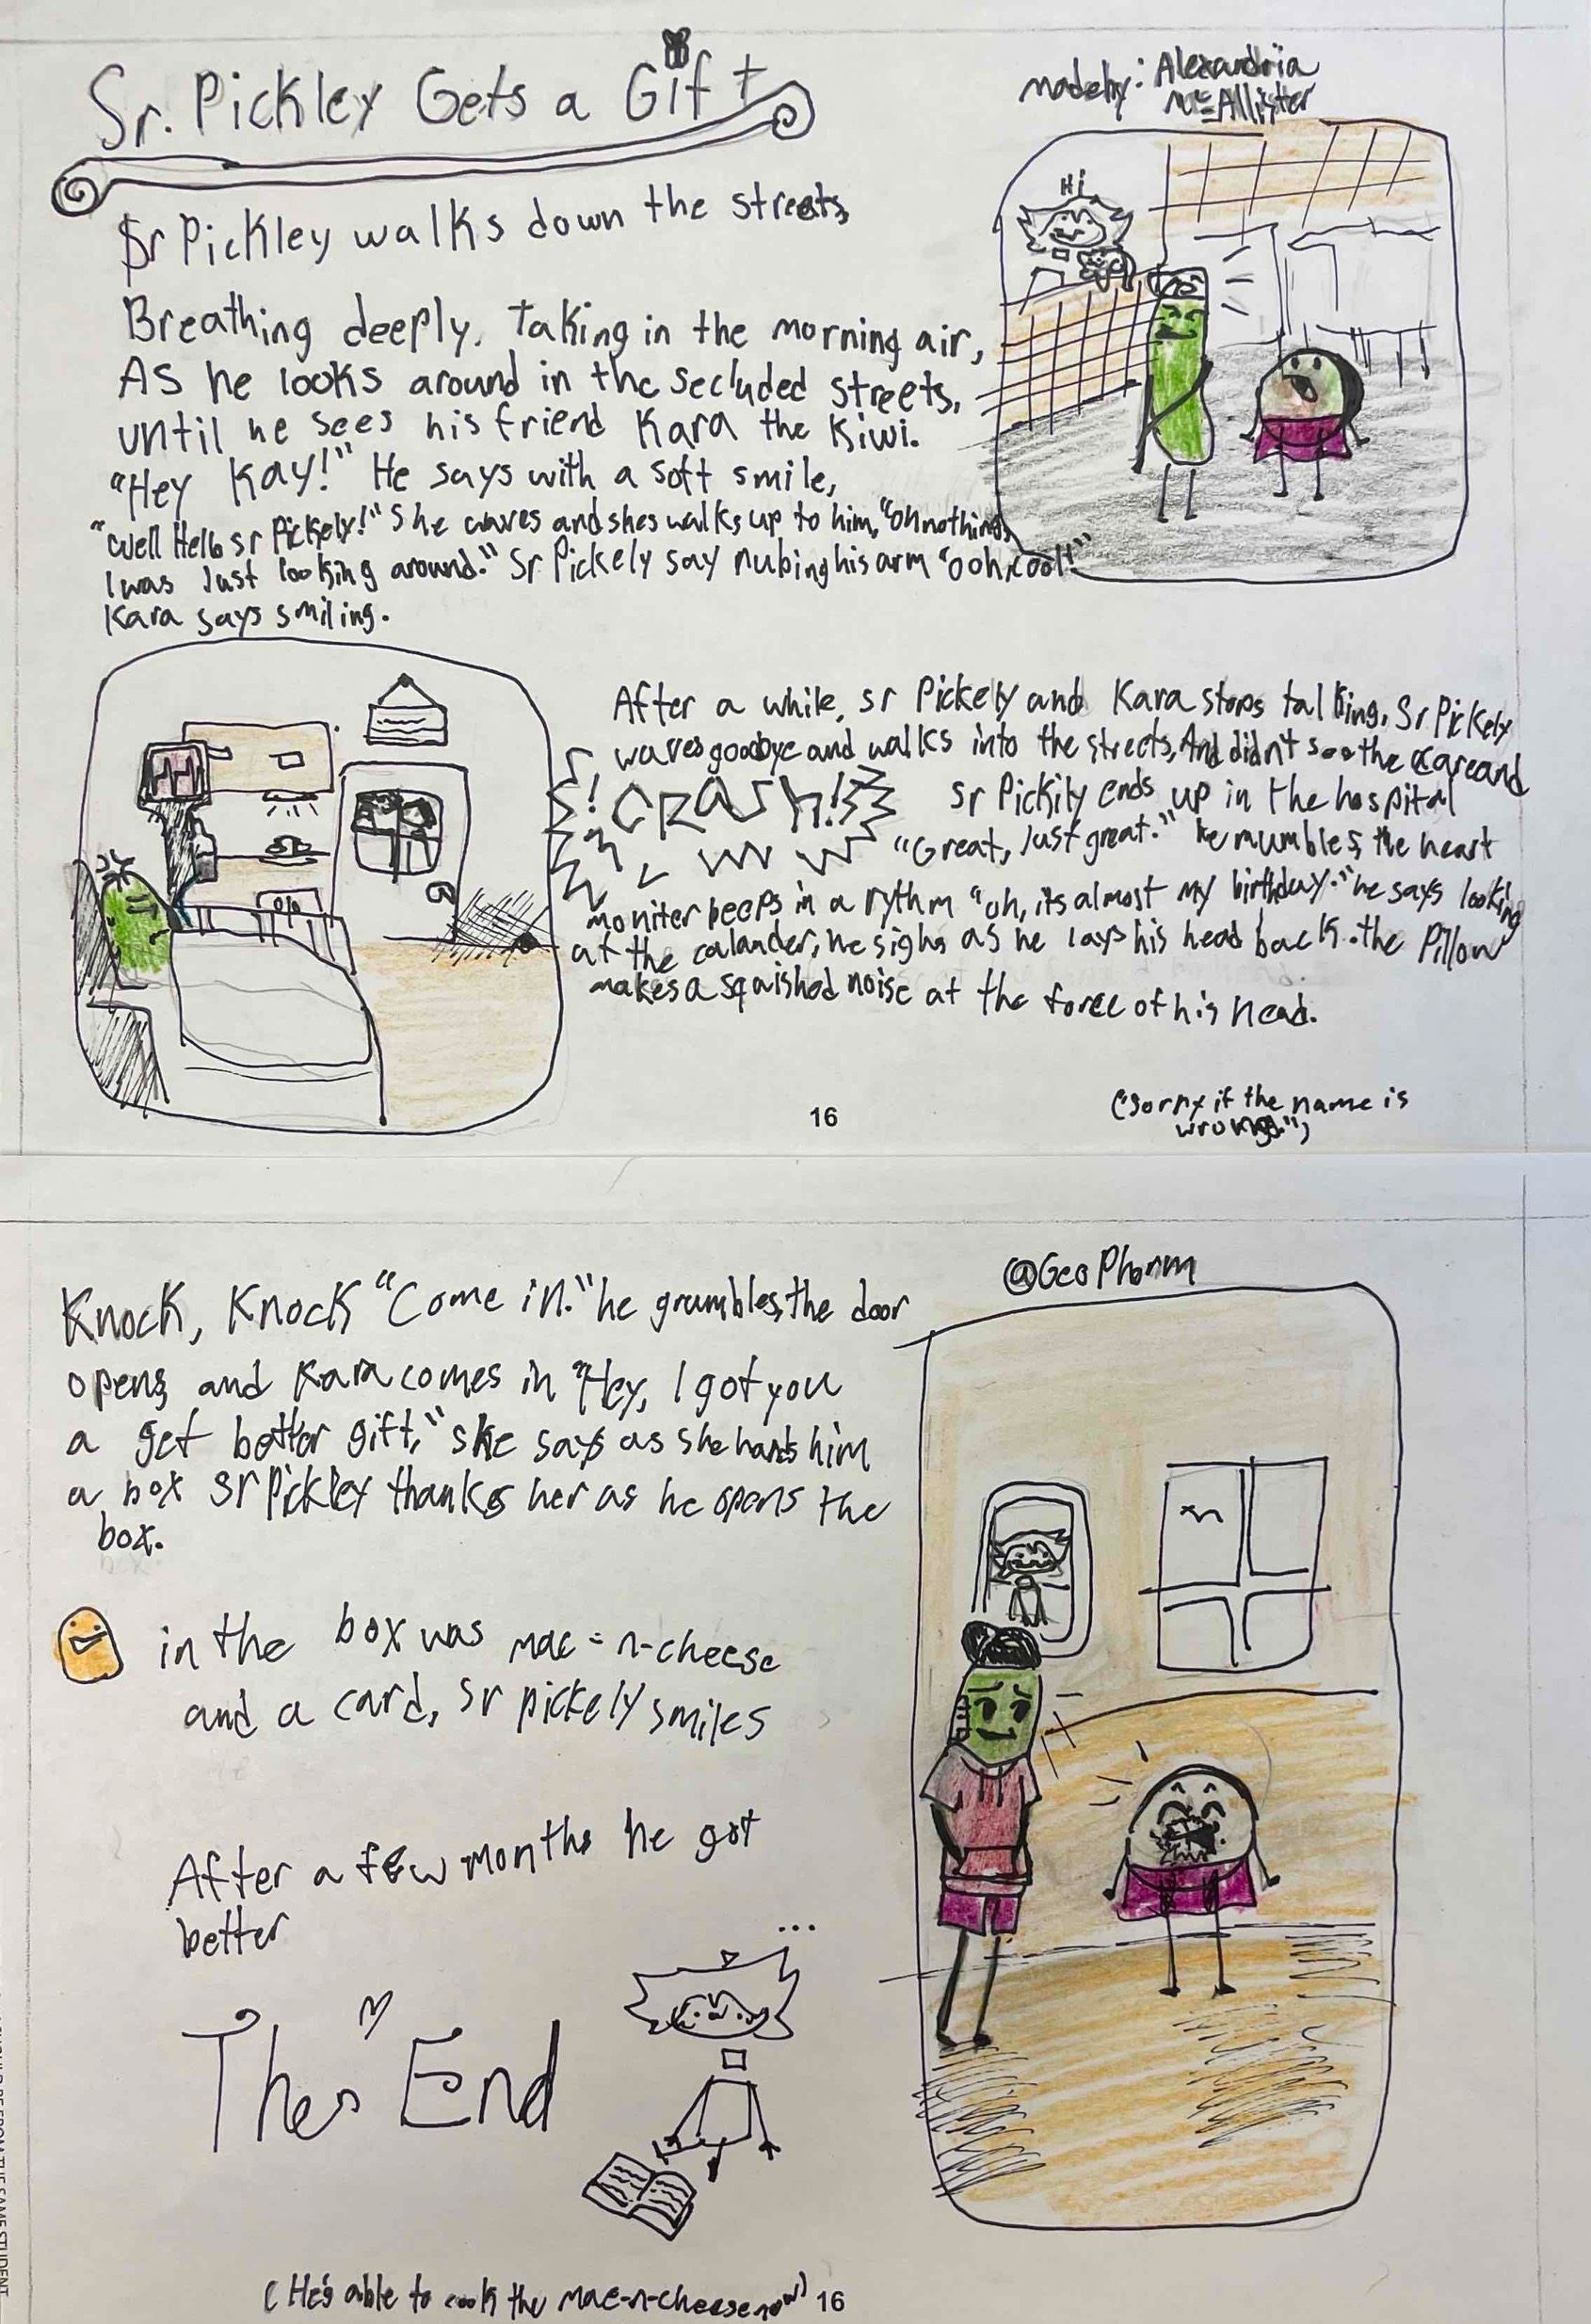 Sr. Pickley Gets a Gift
made by: Alexandria
McAllister
Sr Pickley walks down the streets,
Breathing deeply. Taking in the morning air,
As he looks around in the secluded streets,
until he sees his friend Kara the Kiwi.
"Hey Kay!" He says with a soft smile,
"Well Hello sr Pickely!" She waves and shes walks up to him, "Oh nothing,
I was Just looking around." Sr Pickely say rubing his arm "ooh, cool!"
Kara says smiling.
Hi
After a while, sr Pickely and Kara stops talking. Sr Pickely
waves goodbye and walks into the streets, And didn't see the car and
! CRASH!!
Sr Pickily ends up in the hospital
"Great, Just great." he mumbles, the heart
moniter beeps in a rythm "oh, its almost my birthday." he says looking
at the calander, he sighs as he lays his head back. the Pillow
makes a squished noise at the force of his head.
16
(sorry if the name is
wrong.")
Knock, Knock "Come in." he grumbles, the door
opens, and Kara comes in "Hey, I got you
a get better gift," she says as she hands him
a box Sr Pickley thanks her as he opens the
box.
@GeoPharm
in the box was mac-n-cheese
and a card, Sr pickely smiles
After a few months he got
better
...
The End
(He's able to cook the mac-n-cheese now)
16